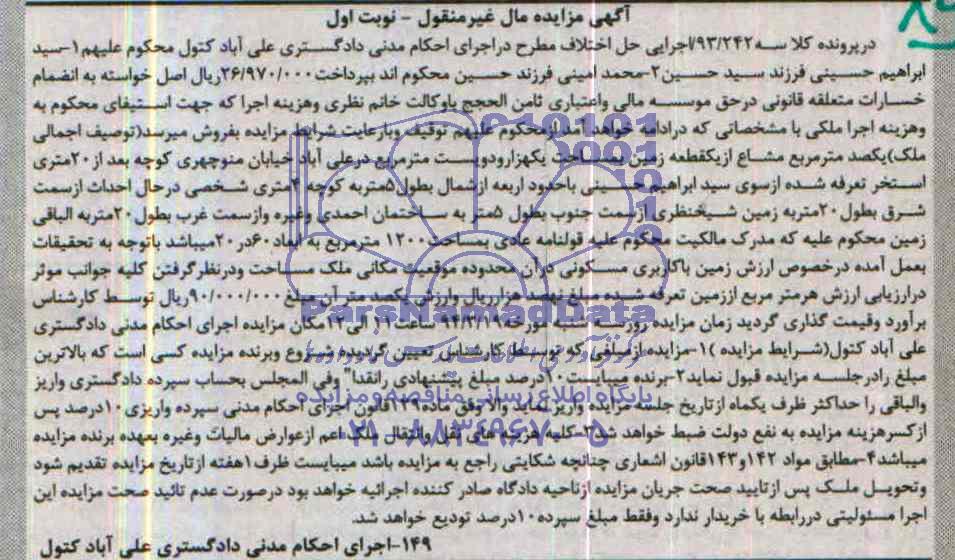 آگهی مزایده مال غیرمنقول - نوبت اول
درپرونده کلا سه۹۳/۲۴۲اجرایی حل اختلاف مطرح دراجرای احکام مدنی دادگستری علی آباد کتول محکوم علیهم۱-سید
ابراهیم حسینی فرزند سید حسین۲-محمد امینی فرزند حسین محکوم اند بپرداخت۲۶/۹۷۰/۰۰۰ریال اصل خواسته به انضمام
خسارات متعلقه قانونی درحق موسسه مالی واعتباری ثامن الحجج باوکالت خانم نظری وهزینه اجرا که جهت استیفای محکوم به
وهزینه اجرا ملکی با مشخصاتی که درادامه خواهد آمد ازمحکوم علیهم توقیف وبارعایت شرایط مزایده بفروش میرسد(توصیف اجمالی
ملک)یکصد مترمربع مشاع ازیکقطعه زمین بمساحت یکهزارودویست مترمربع درعلی آباد خیابان منوچهری کوچه بعد از۲۰متری
استخر تعرفه شده ازسوی سید ابراهیم حسینی باحدود اربعه ازشمال بطول۵متربه کوچه ۴متری شخصی درحال احداث ازسمت
شرق بطول۲۰متربه زمین شیخنظری ازسمت جنوب بطول ۵متر به ساختمان احمدی وغیره وازسمت غرب بطول۲۰متربه الباقی
زمین محکوم علیه که مدرک مالکیت محکوم علیه قولنامه عادی بمساحت۱۲۰۰ مترمربع به ابعاد۶۰در۲۰میباشد باتوجه به تحقیقات
بعمل آمده درخصوص ارزش زمین باکاربری مسکونی درآن محدوده موقعیت مکانی ملک مساحت ودرنظرگرفتن کلیه جوانب موثر
درارزیابی ارزش هرمتر مربع اززمین تعرفه شده مبلغ نهصد هزارریال وارزش یکصد متر آن مبلغ ۹۰/۰۰۰/۰۰۰ریال توسط کارشناس
برآورد وقیمت گذاری گردید زمان مزایده روزسه شنبه مورخه۹۴/۳/۱۹ ساعت۱۱الی۱۲مکان مزایده اجرای احکام مدنی دادگستری
علی آباد کتول(شرایط مزایده )۱-مزایده ازمبلغی که توسط کارشناس تعیین گردیده شروع وبرنده مزایده کسی است که بالاترین
مبلغ رادرجلسه مزایده قبول نماید۲-برنده میبایست۱۰درصد مبلغ پیشنهادی رانقدا" وفی المجلس بحساب سپرده دادگستری واریز
والباقی را حداکثر ظرف یکماه ازتاریخ جلسه مزایده واریز نماید والا وفق ماده۱۲۹قانون اجرای احکام مدنی سپرده واریزی۱۰درصد پس
ازکسرهزینه مزایده به نفع دولت ضبط خواهد شد۳-کلیه هزینه های نقل وانتقال ملک اعم ازعوارض مالیات وغیره بعهده برنده مزایده
میباشد۴-مطابق مواد ۱۴۲و۱۴۳قانون اشعاری چنانچه شکایتی راجع به مزایده باشد میبایست ظرف۱هفته ازتاریخ مزایده تقدیم شود
وتحویل ملک پس ازتایید صحت جریان مزایده ازناحیه دادگاه صادر کننده اجرائیه خواهد بود درصورت عدم تائید صحت مزایده این
اجرا مسئولیتی دررابطه با خریدار ندارد وفقط مبلغ سپرده۱۰درصد تودیع خواهد شد.
۱۴۹-اجرای احکام مدنی دادگستری علی آباد کتول
ParsNamadData
پایگاه اطلاع رسانی مناقصه و مزایده
۰۲۱-۸۸۳۴۹۶۷۰-۵